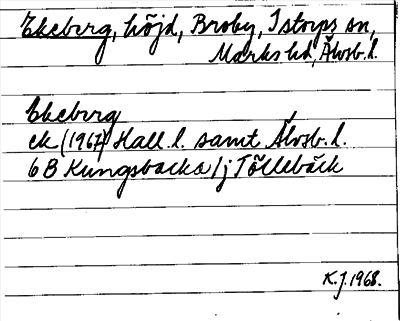 Ekeberg, höjd, Broby, Istorps sn,
Marks hd, Älvsb. l.
Ekeberg
ek (1967) Hall. l. samt Älvsb. l.
6 B Kungsbacka 1j Töllebäck
K.J. 1968.